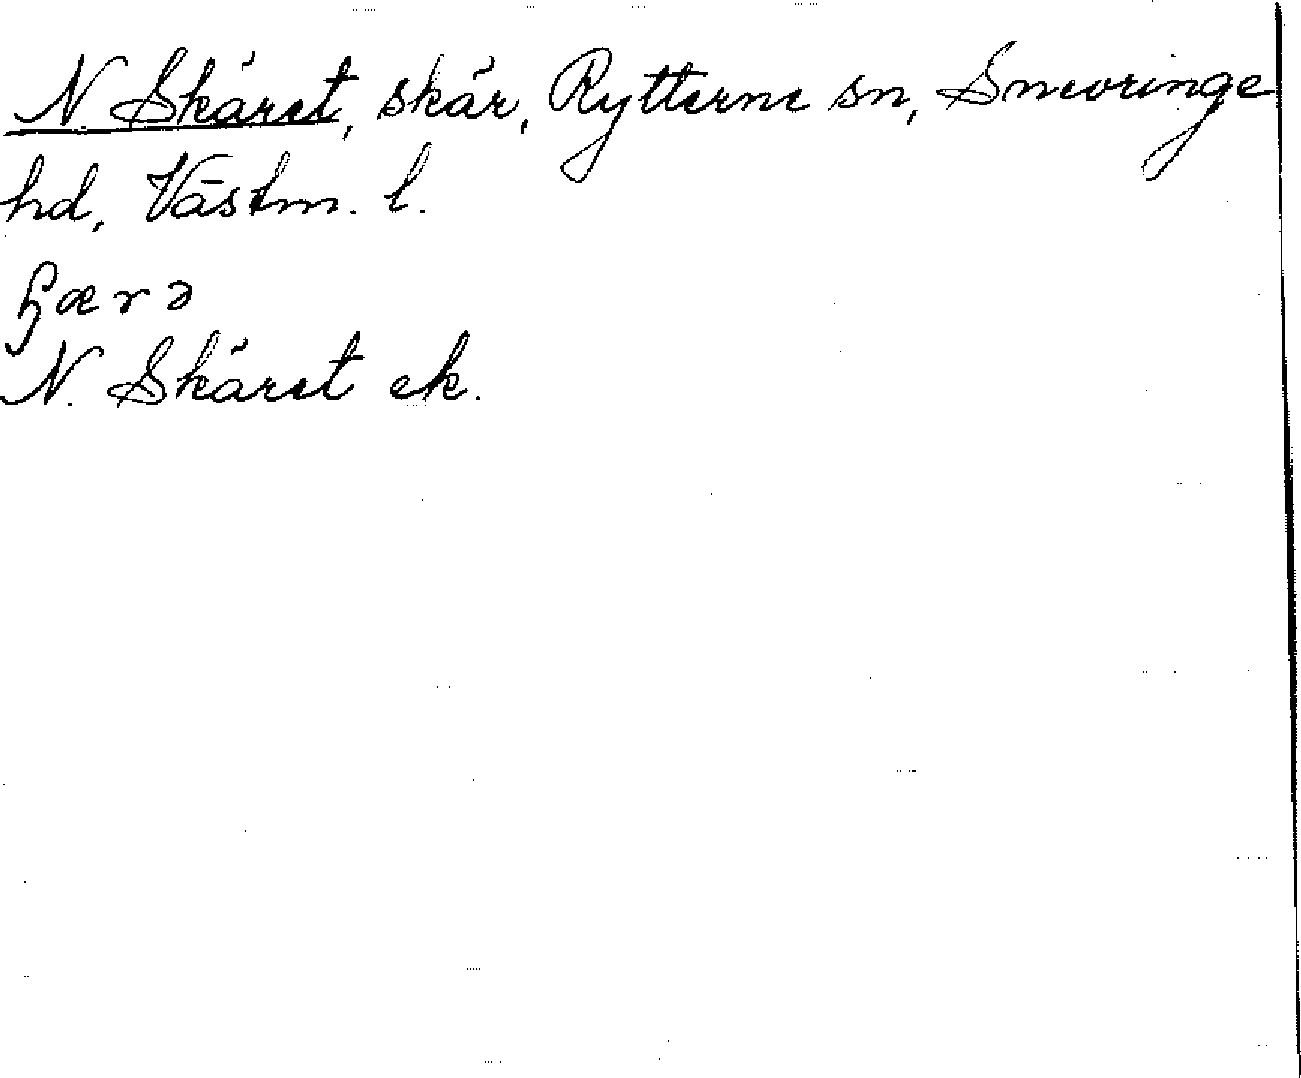 N. Skäret, skär, Rytterne sn, Snevringe
hd, Västm. l.
ɧærə
N. Skäret ek.